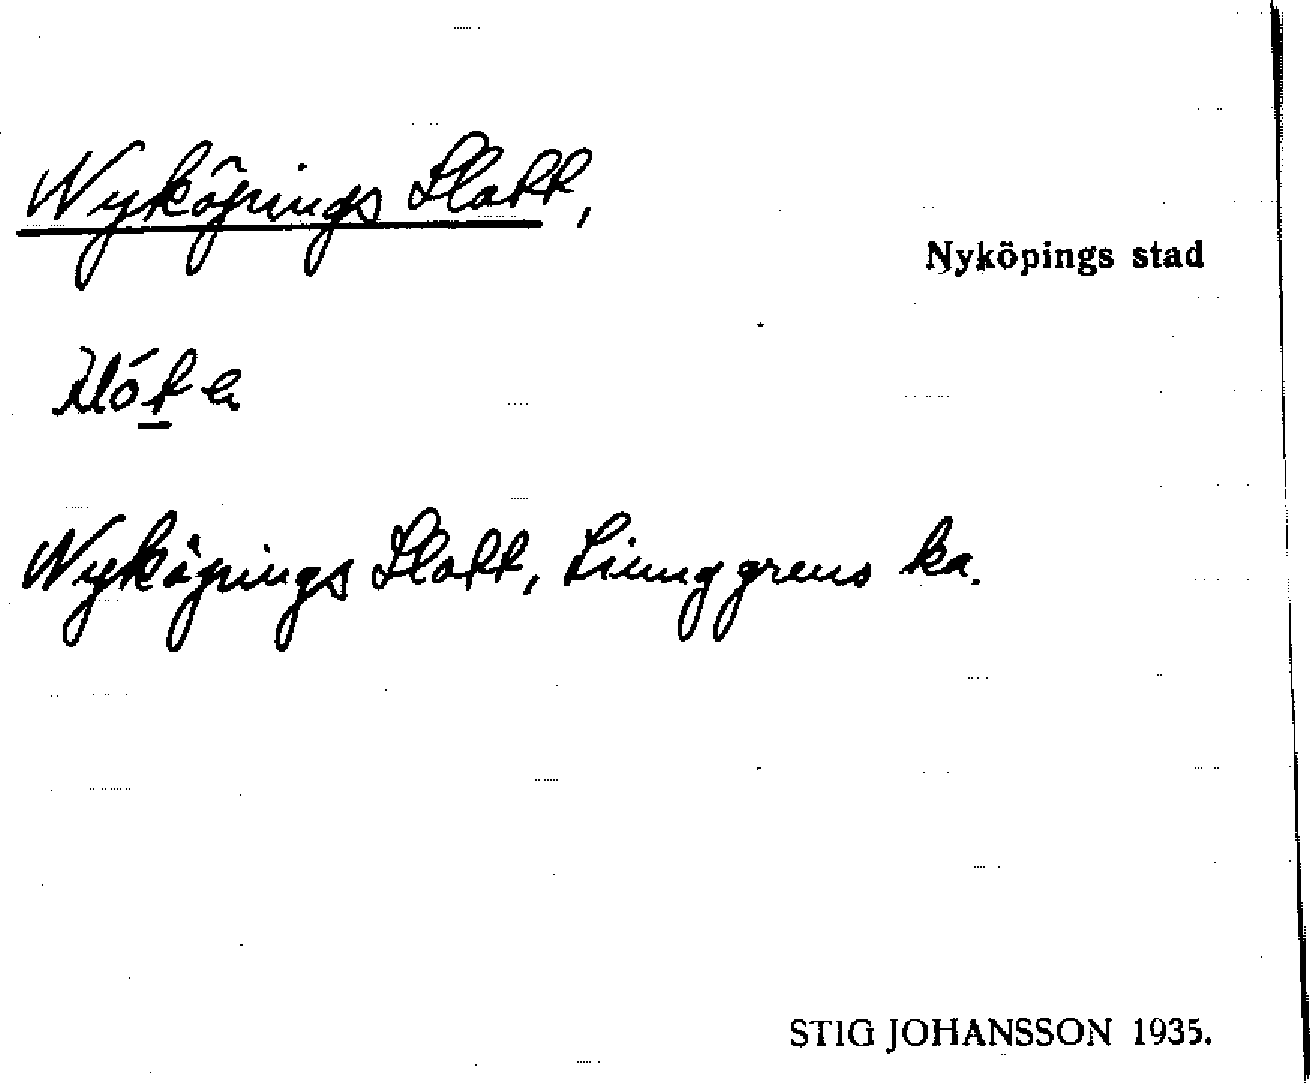 Nyköpings Slott,
Nyköpings stad
Nyköpings Slott, Ljunggrens ka.
STIG JOHANSSON 1935.